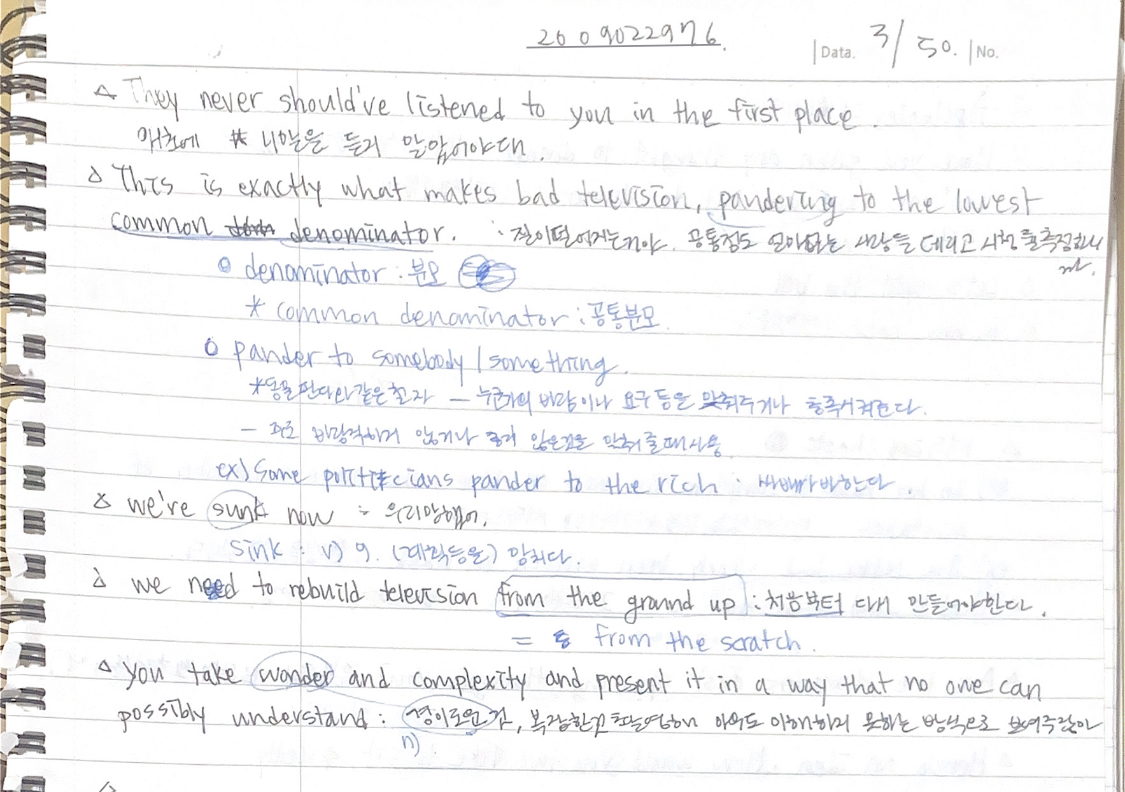 2009022976.
Data. 3/50. No.
△ They never should've listened to you in the first place.
애초에 니말을 듣지 말았어야대.
△ This is exactly what makes bad television, pandering to the lowest
common denominator. : 질이떨어지는거야. 공통점도 사람들 데리고
o denominator : 분모
* common denominator : 공통분모
o pander to somebody / something.
* 같은 — 누군가의 바람이나 요구 등을 맞춰주거나 충족시켜준다.
— 바람직하지 않거나 좋지 않은것을 맞춰줄때사용
ex) Some politicians pander to the rich :
△ we're sunk now : 우리망했어.
sink : v) 9. (계획등을) 망치다.
△ we need to rebuild television from the ground up : 처음부터 다시 만들어야한다.
= from the scratch.
△ you take wonder and complexity and present it in a way that no one can
possibly understand : 경이로운 것, 복잡한것 아무도 이해하지 못하는 방식으로 보여주잖아
n)